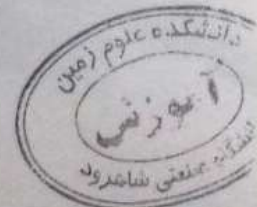 دانشکده علوم زمین
آموزش
صنعتی شاهرود